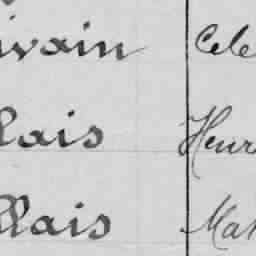 ivain Cele
lais Henr
llais Mat